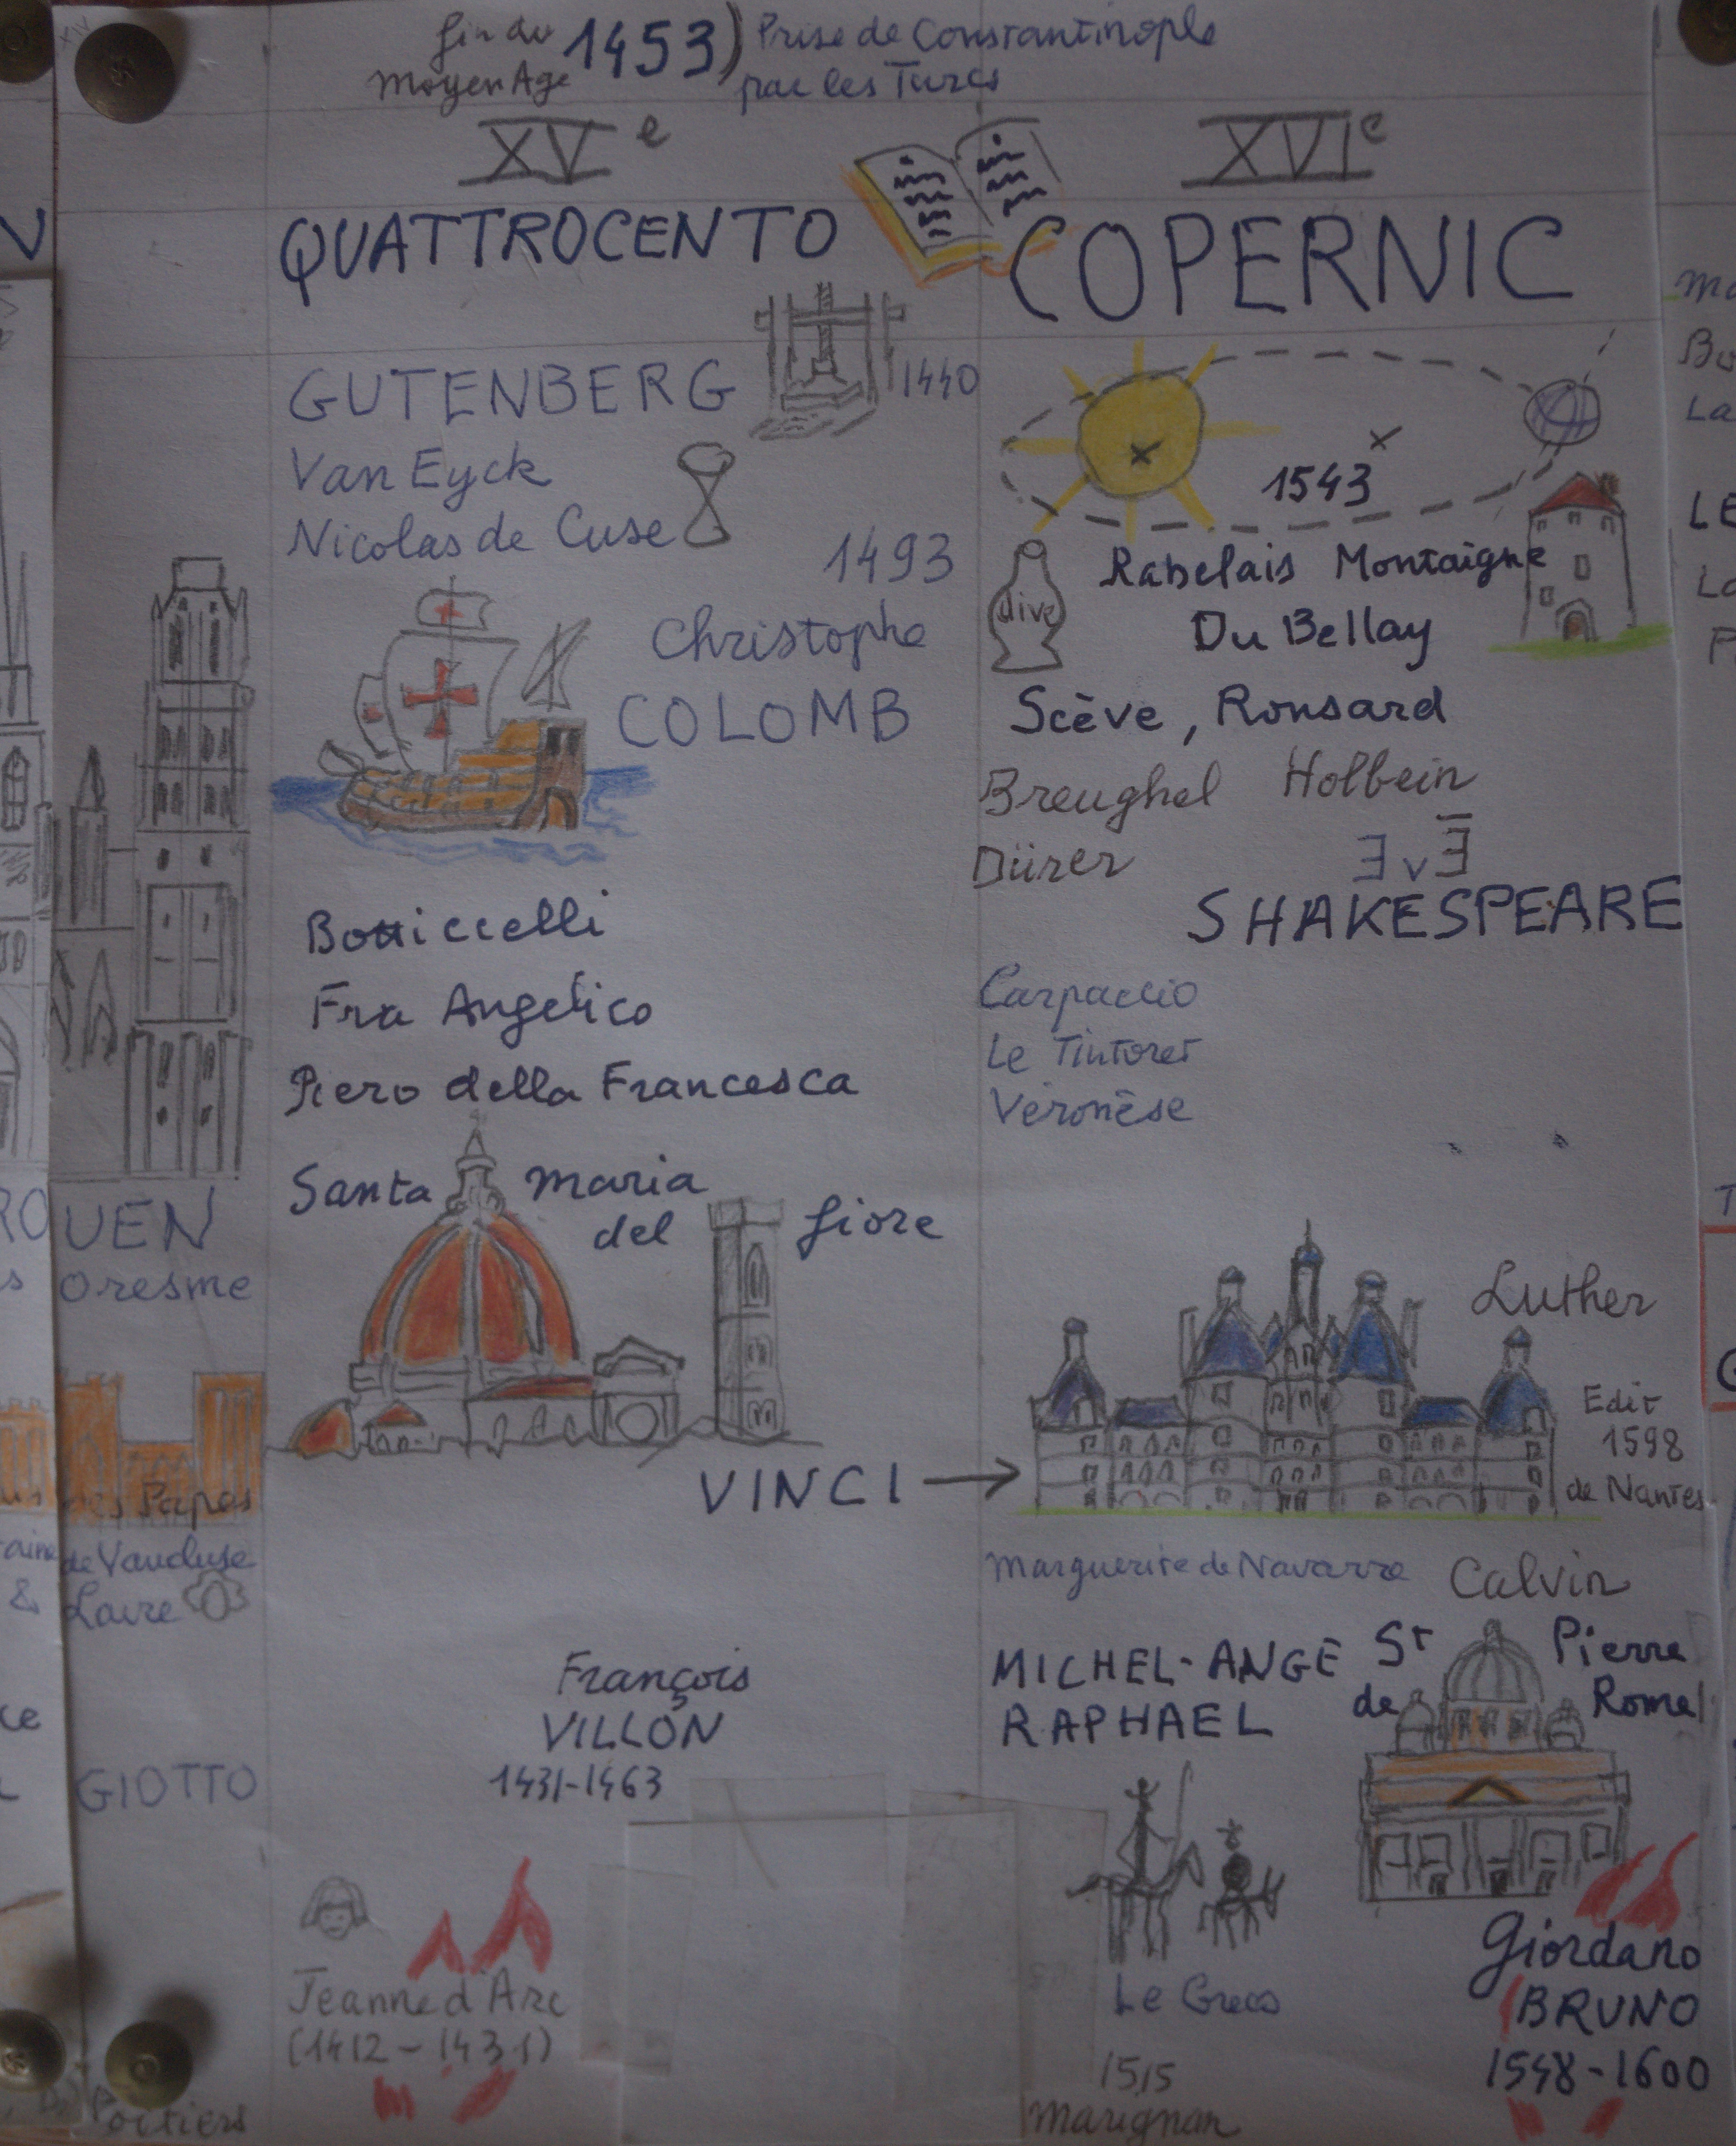 fin du
Moyen Age
1453)
Prise de Constantinople
par les Turcs
XVe
XVIe
QUATTROCENTO
COPERNIC
GUTENBERG
1440
Van Eyck
Nicolas de Cuse
1493
Christophe
COLOMB
1543
dive
Rabelais Montaigne
Du Bellay
Scève, Ronsard
Breughel Holbein
Dürer
∃ v ∃̅
SHAKESPEARE
Botticcelli
Fra Angelico
Piero della Francesca
Carpaccio
Le Tintoret
Véronèse
Santa Maria
del fiore
VINCI →
Luther
Edit
1598
de Nantes
Marguerite de Navarre
Calvin
MICHEL-ANGE
RAPHAEL
St Pierre
de Rome
François
VILLON
1431-1463
Jeanne d'Arc
(1412-1431)
Le Greco
1515
Marignan
Giordano
BRUNO
1548-1600
ROUEN
Oresme
des Papes
de Vaucluse
& Laure
GIOTTO
Poitiers